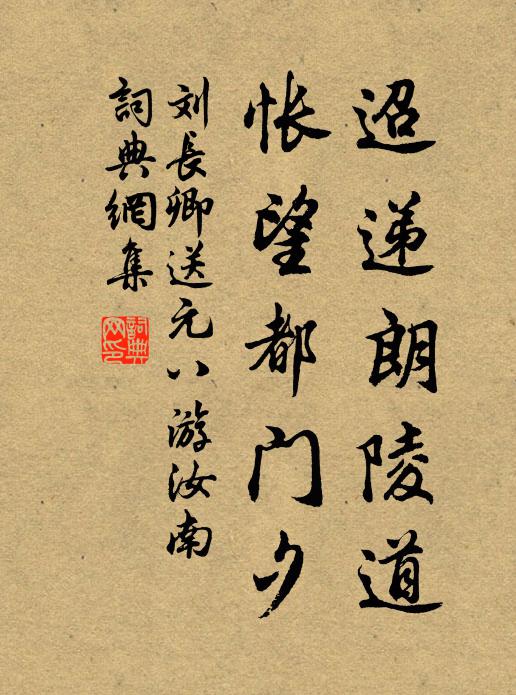 迢递朗陵道
怅望都门夕
刘長卿送元八游汝南
詞典網集
詞典网印